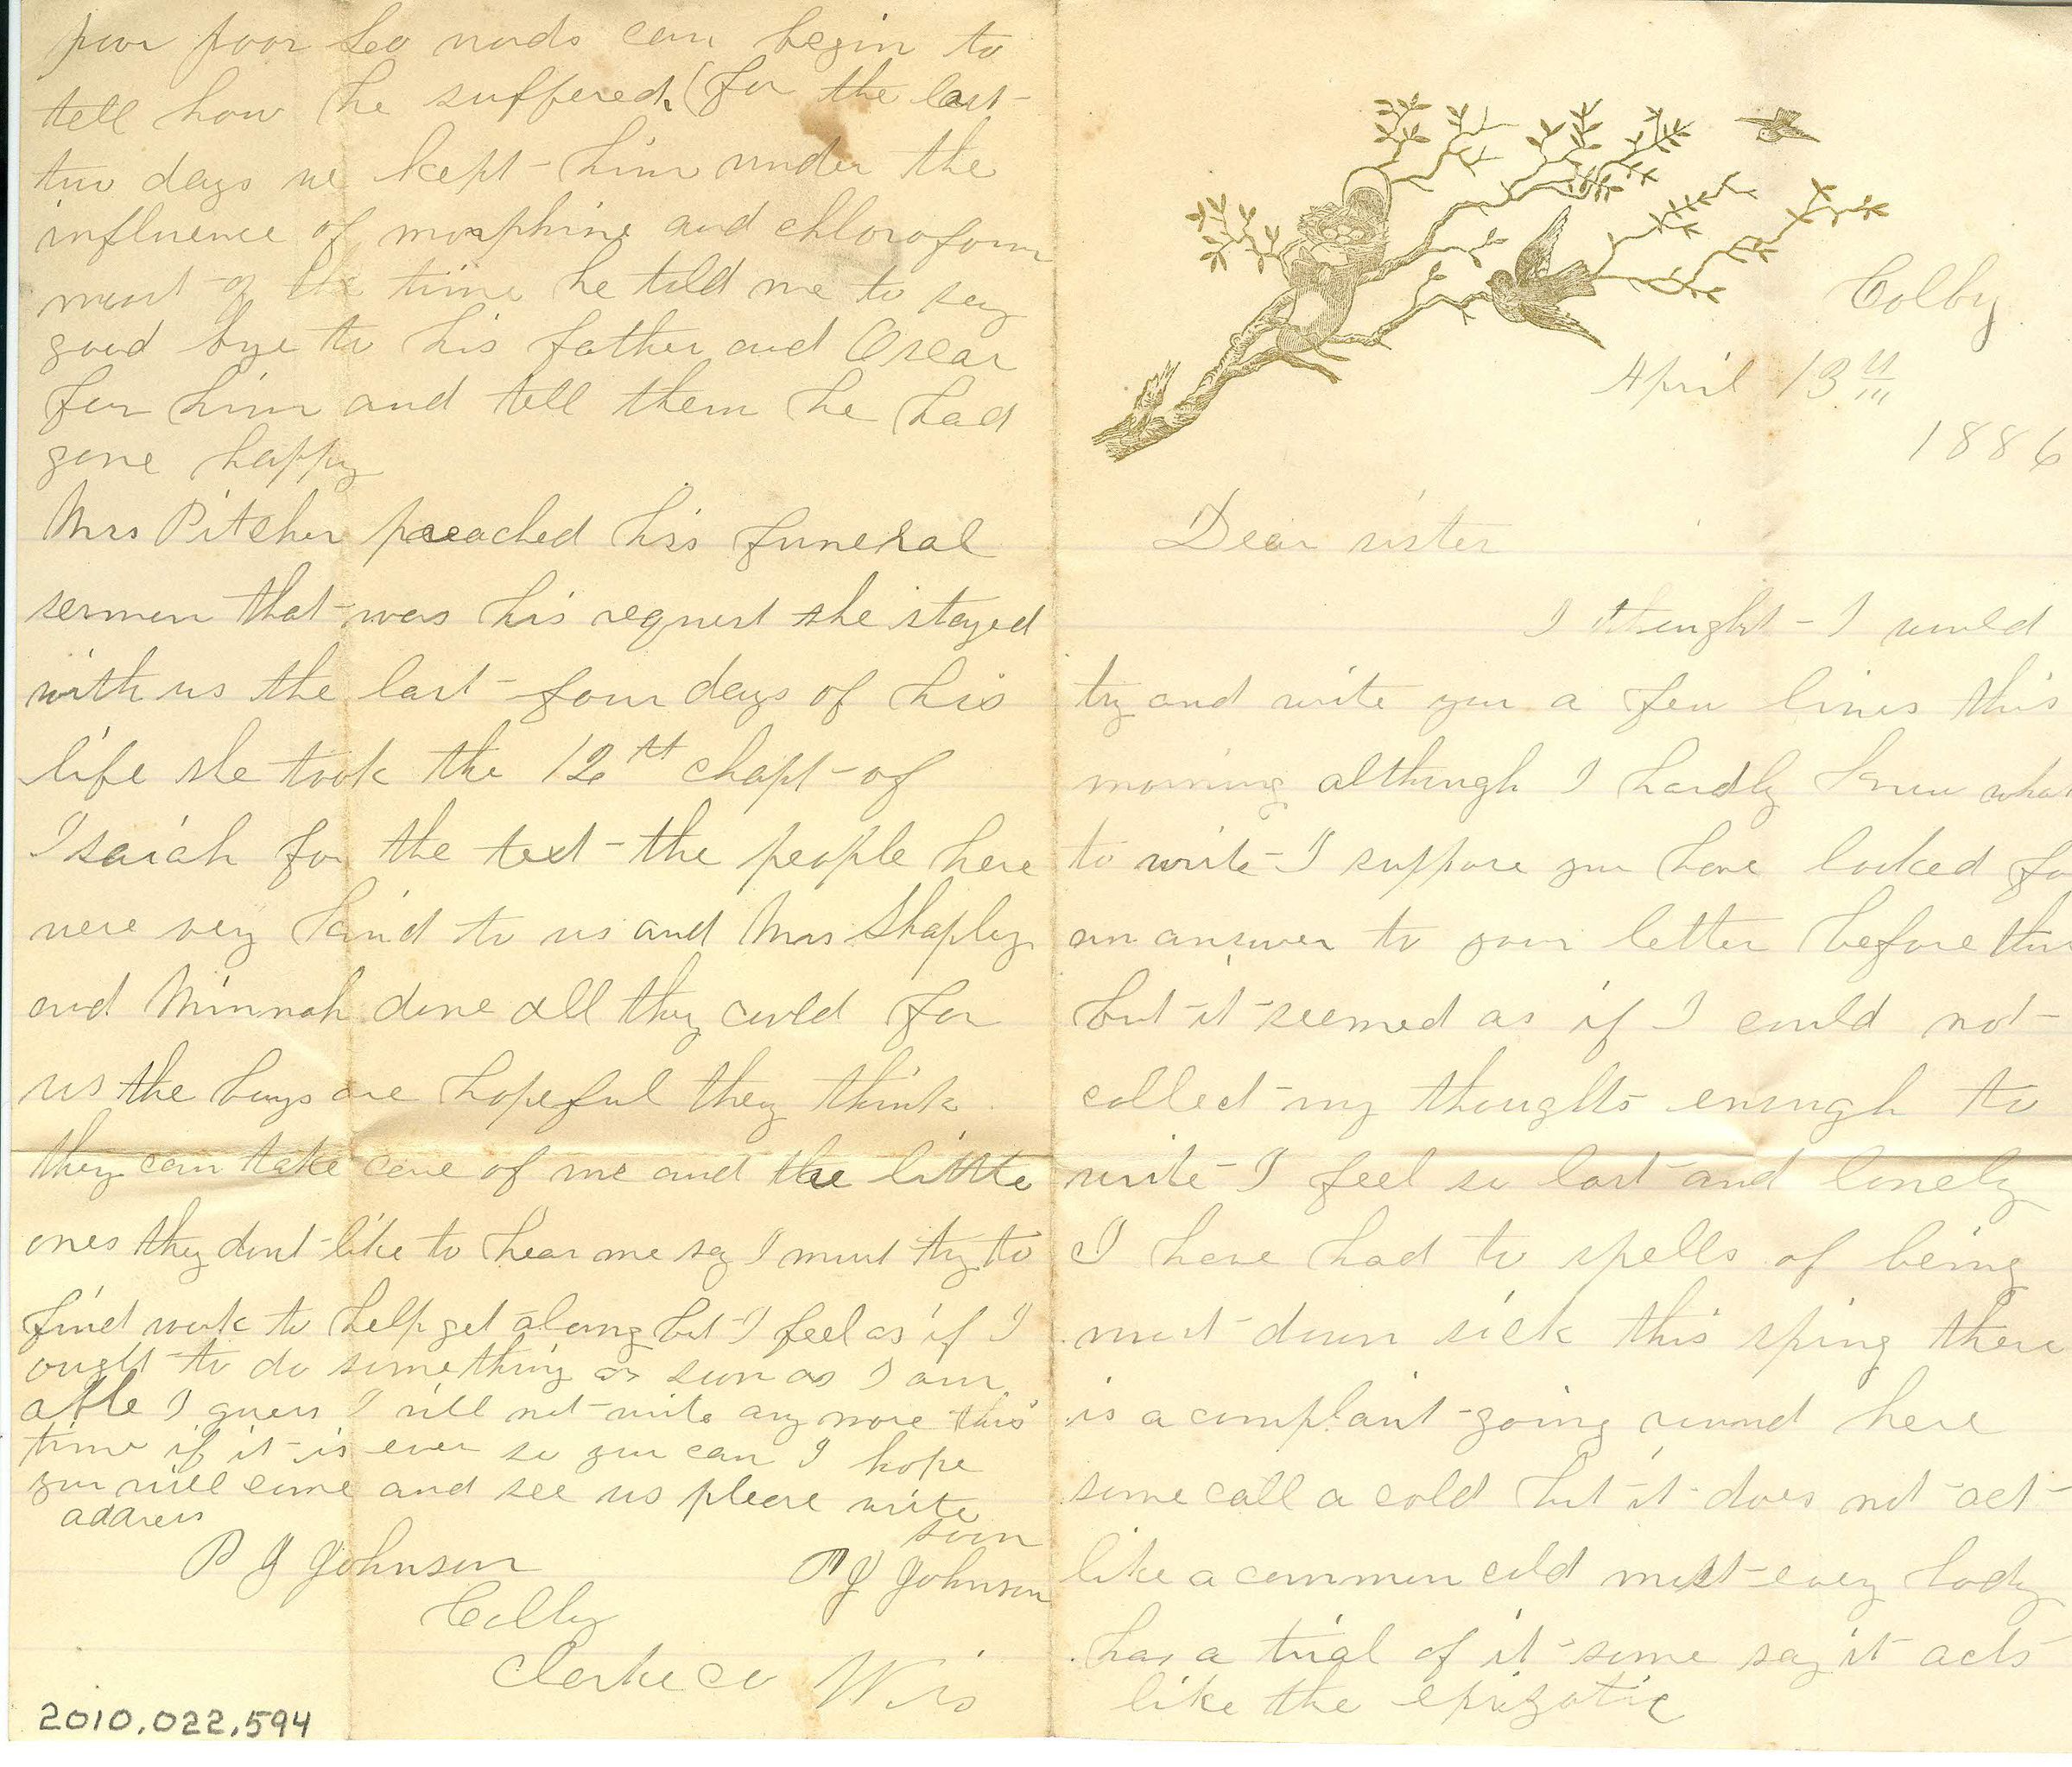 Colby
April 13th
1886
Dear sister
I thought I would
try and write you a few lines this
morning although I hardly know what
to write I suppose you have looked fo
an answer to your letter before this
but it seemed as if I could not
collect my thoughts enough to
write I feel so lost and lonely
I have had to spells of being
most down sick this spring there
is a complaint going round here
some call a cold but it does not act
like a common cold most every body
has a trial of it some say it acts
like the epizotic
poor poor Leo words can begin to
tell how he suffered for the last
two days we kept him under the
influence of morphine and chloroform
most of the time he told me to say
good bye to his father and Oscar
for him and tell them he had
gone happy
Mrs Pitcher preached his funeral
sermon that was his request she stayed
with us the last four days of his
life she took the 12th chapt of
Isaiah for the text the people here
were very kind to us and Mrs Shapley
and Minnah done all they could for
us the boys are hopeful they think
they can take care of me and the little
ones they dont like to hear me say I must try to
find work to help get along but I feel as if I
ought to do something as soon as I am
able I guess I will not write any more this
time if it is ever so you can I hope
you will come and see us please write
soon
address
P J Johnson
P J Johnson
Colby
Clarke co Wis
2010.022.594